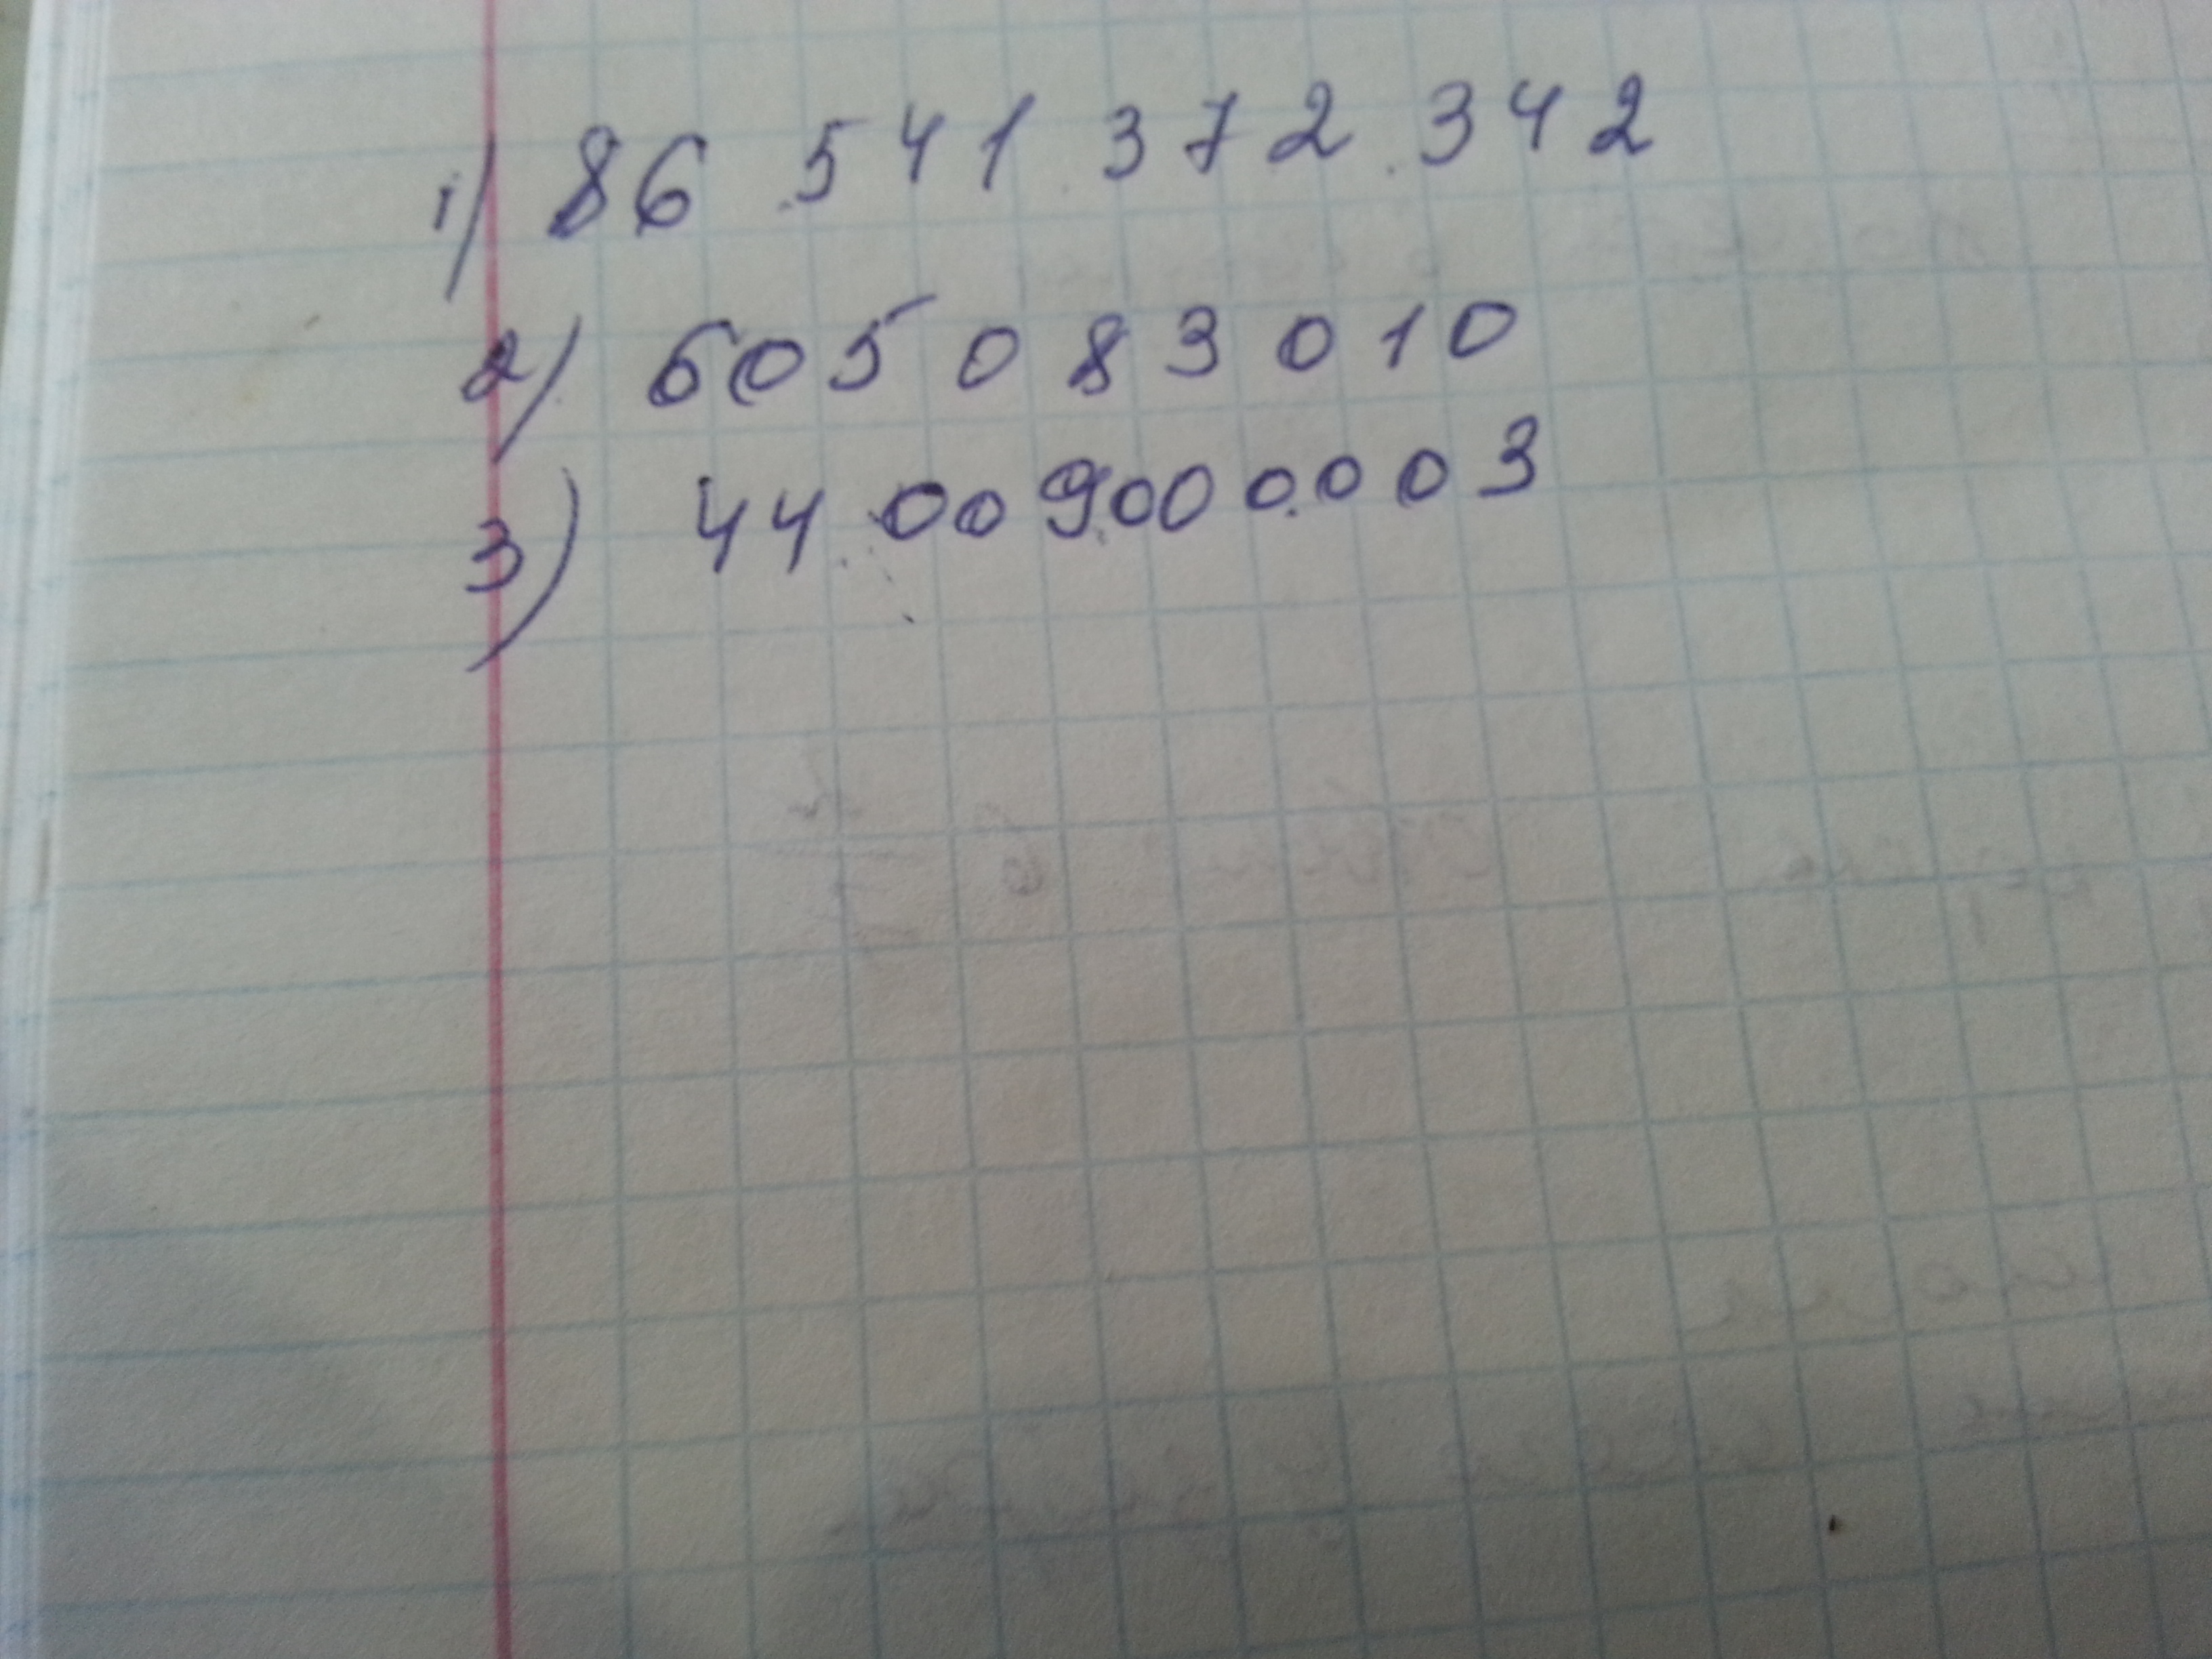 1) 86.541.372.342
2) 605 083 010
3) 44.009.000.003